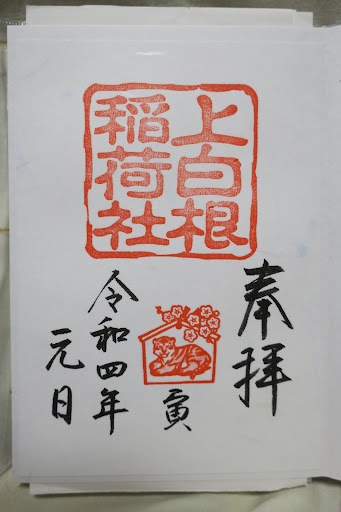 奉拝
上白根
稲荷社
寅
令和四年
元日